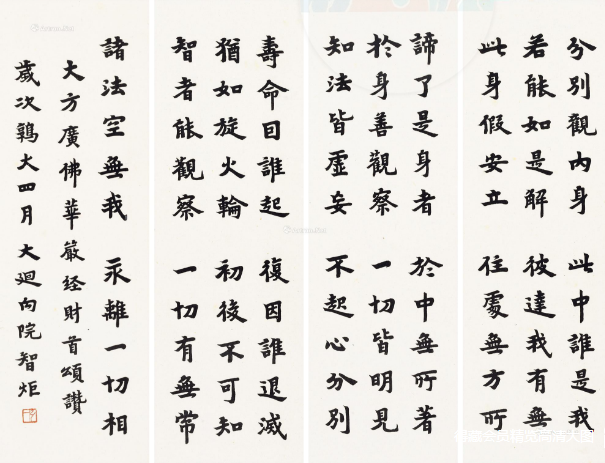 分別觀內身 此中誰是我
若能如是解 彼達我有無
此身假安立 住處無方所
諦了是身者 於中無所著
於身善觀察 一切皆明見
知法皆虛妄 不起心分別
壽命因誰起 復因誰退滅
猶如旋火輪 初後不可知
智者能觀察 一切有無常
諸法空無我 永離一切相
大方廣佛華嚴经財首頌讚
歲次鶉火四月 大迴向院智炬